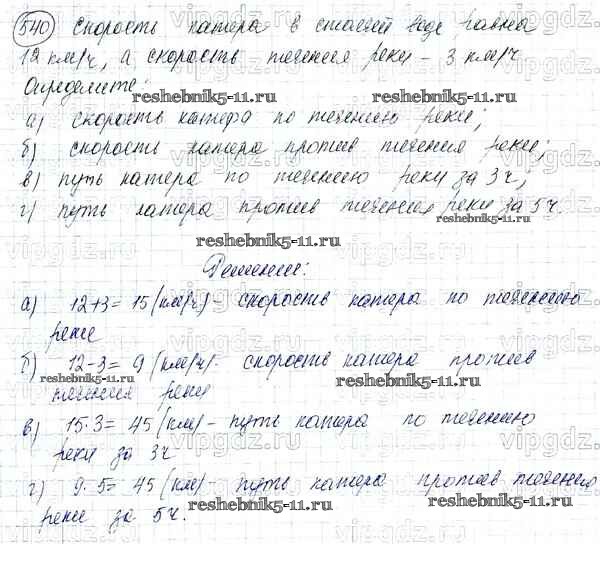 540 Скорость катера в стоячей воде равна
12 км/ч, а скорость течения реки – 3 км/ч
Определите:
reshebnik5-11.ru reshebnik5-11.ru
а) скорость катера по течению реки;
б) скорость катера против течения реки;
в) путь катера по течению реки за 3ч;
г) путь катера против течения реки за 5ч.
reshebnik5-11.ru
Решение:
а) 12+3= 15 (км/ч)- скорость катера по течению
реки
б) 12-3= 9 (км/ч)- скорость катера против
reshebnik5-11.ru reshebnik5-11.ru
течения реки
в) 15·3= 45 (км) - путь катера по течению
реки за 3ч
vipgdz.ru vipgdz.ru
г) 9·5= 45 (км) - путь катера против течения
реки за 5ч.
reshebnik5-11.ru reshebnik5-11.ru